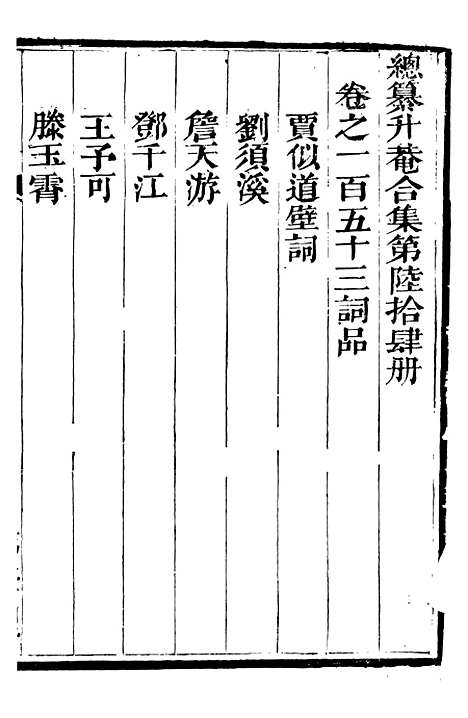 總纂升菴合集第陸拾肆册
卷之一百五十三詞品
賈似道壁詞
劉須溪
詹天游
鄧千江
王予可
滕玉霄